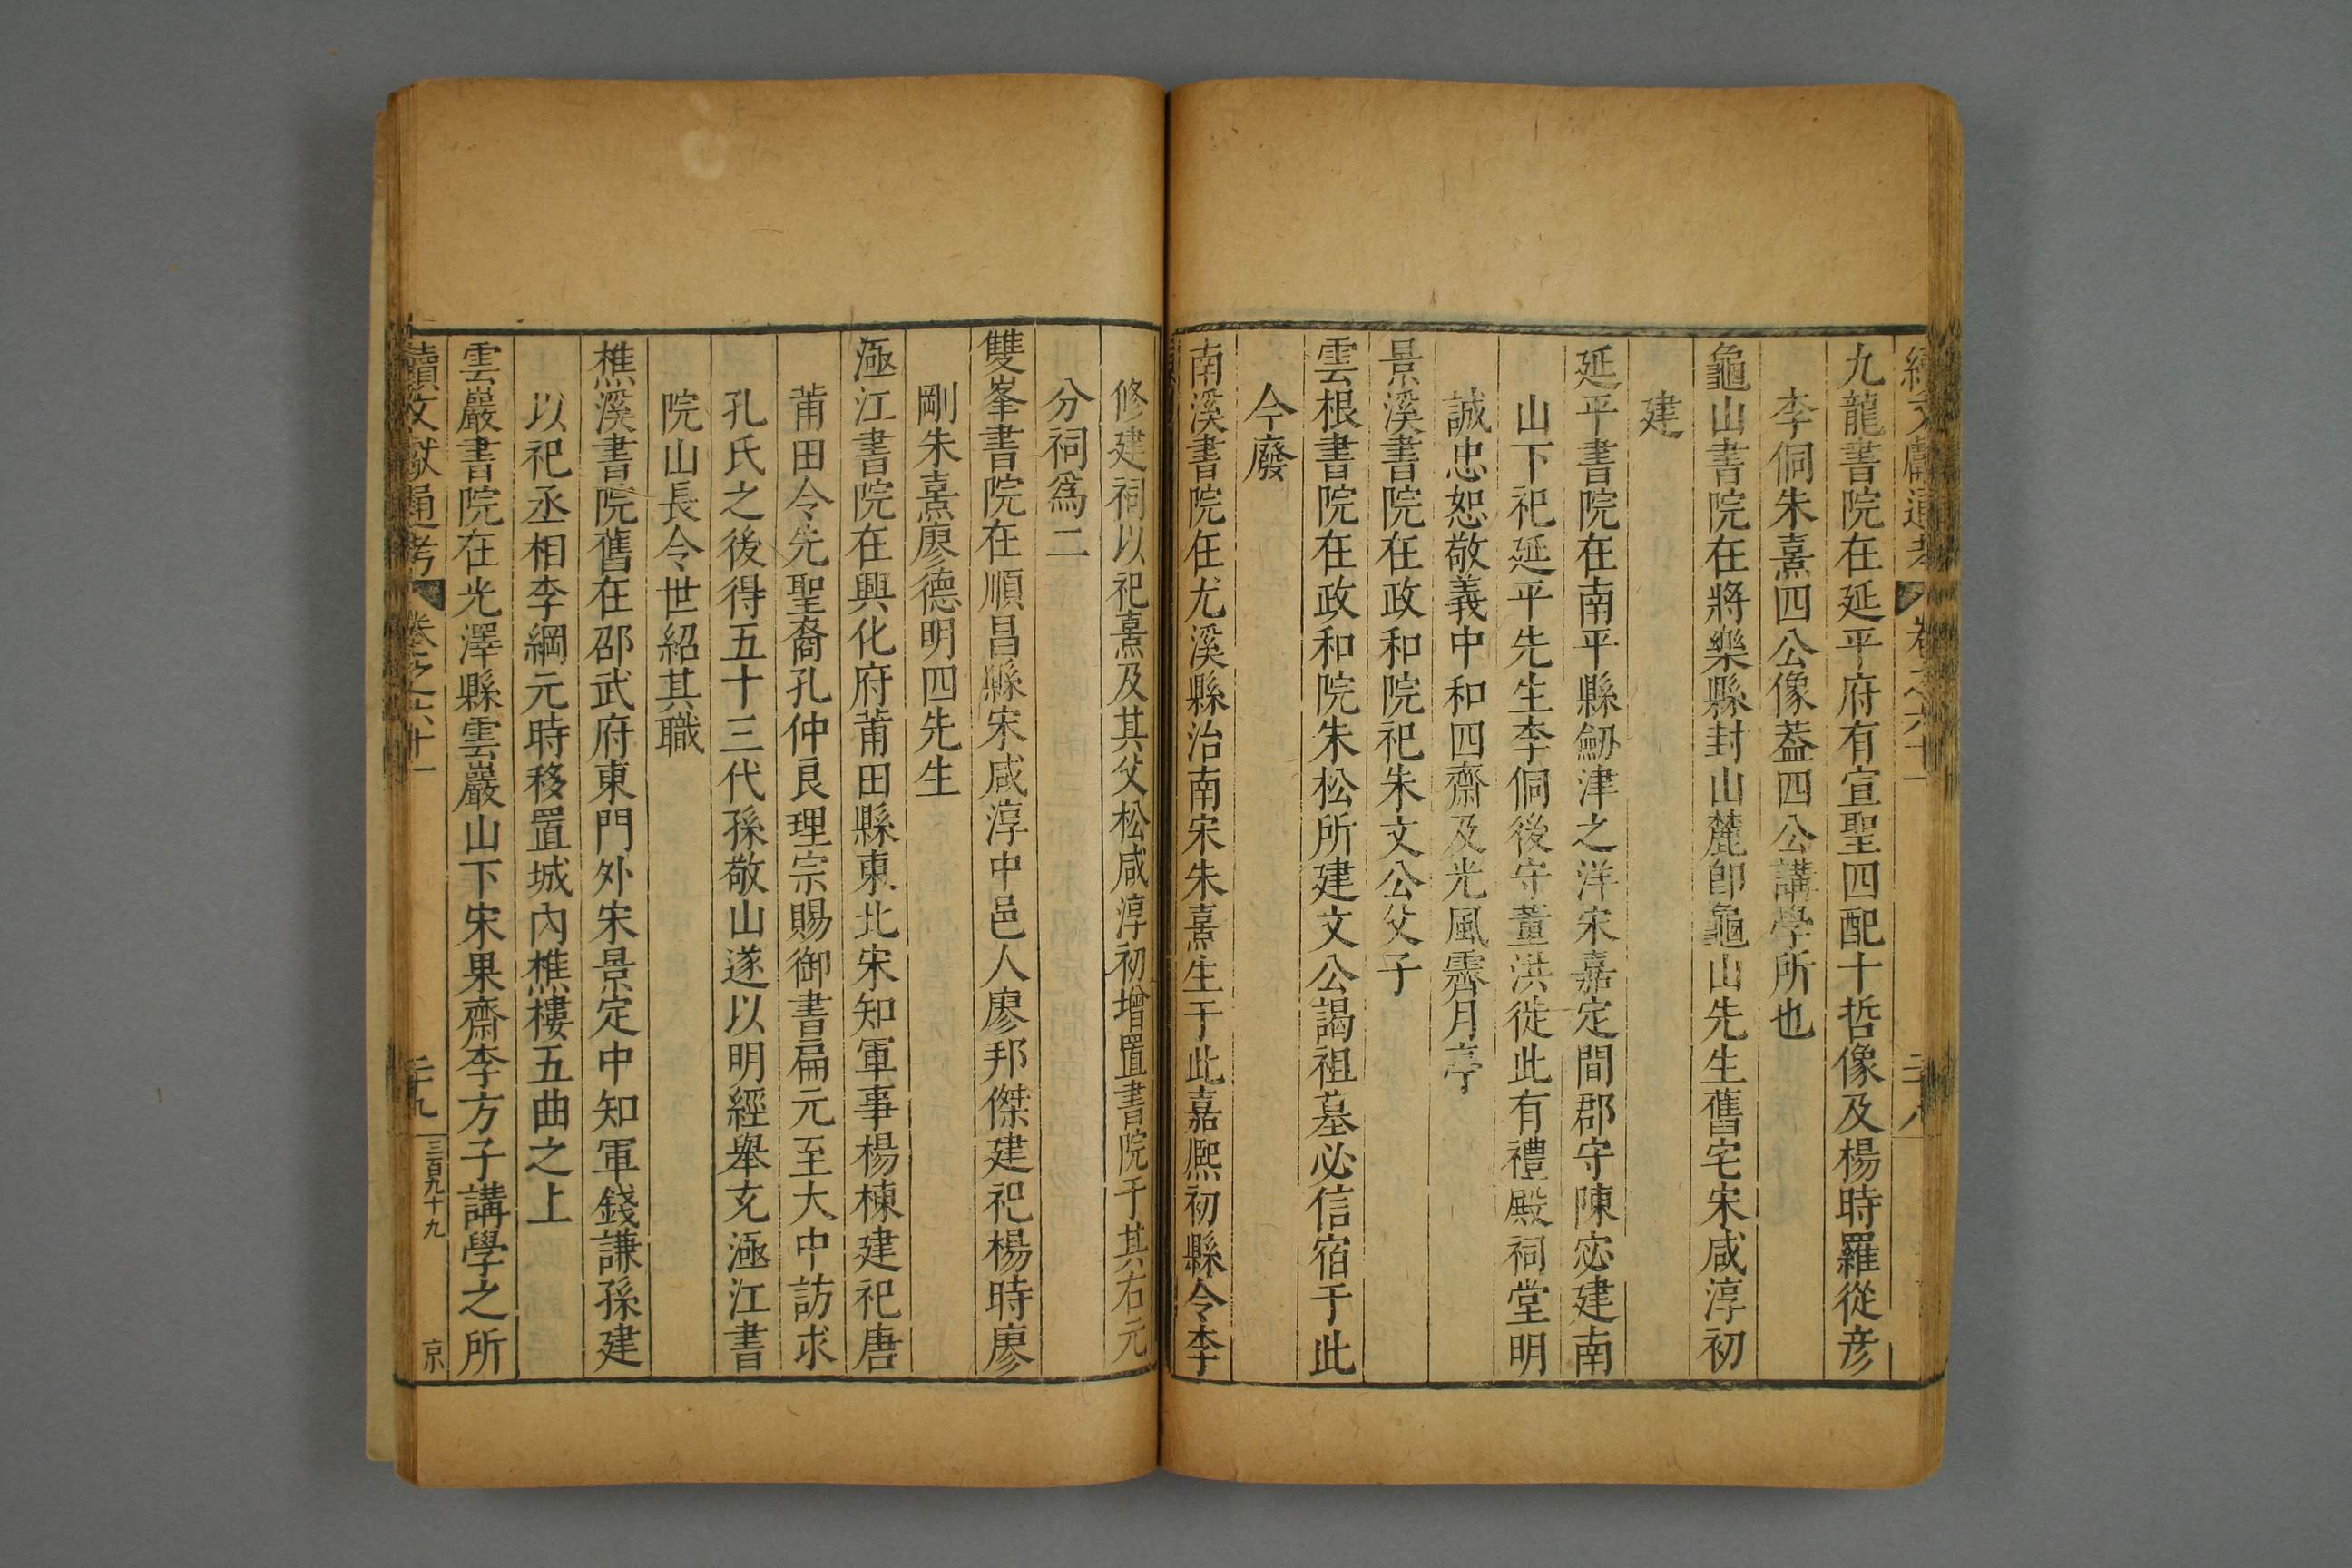 續文獻通考 卷之六十一 二十八
九龍書院在延平府有宣聖四配十哲像及楊時羅從彦
李侗朱熹四公像葢四公講學所也
龜山書院在將樂縣封山麓卽龜山先生舊宅宋咸淳初
建
延平書院在南平縣劒津之洋宋嘉定間郡守陳宓建南
山下祀延平先生李侗後守董洪徙此有禮殿祠堂明
誠忠恕敬義中和四齋及光風霽月亭
景溪書院在政和院祀朱文公父子
雲根書院在政和院朱松所建文公謁祖墓必信宿于此
今廢
南溪書院在尤溪縣治南宋朱熹生于此嘉熈初縣令李
修建祠以祀熹及其父松咸淳初增置書院于其右元
分祠爲二
雙峯書院在順昌縣宋咸淳中邑人廖邦傑建祀楊時廖
剛朱熹廖德明四先生
涵江書院在興化府莆田縣東北宋知軍事楊棟建祀唐
莆田令先聖裔孔仲良理宗賜御書扁元至大中訪求
孔氏之後得五十三代孫敬山遂以明經舉充涵江書
院山長令世紹其職
樵溪書院舊在邵武府東門外宋景定中知軍錢謙孫建
以祀丞相李綱元時移置城內樵樓五曲之上
雲巖書院在光澤縣雲巖山下宋果齋李方子講學之所
續文獻通考 卷之六十一 二十九 三百九十九 京